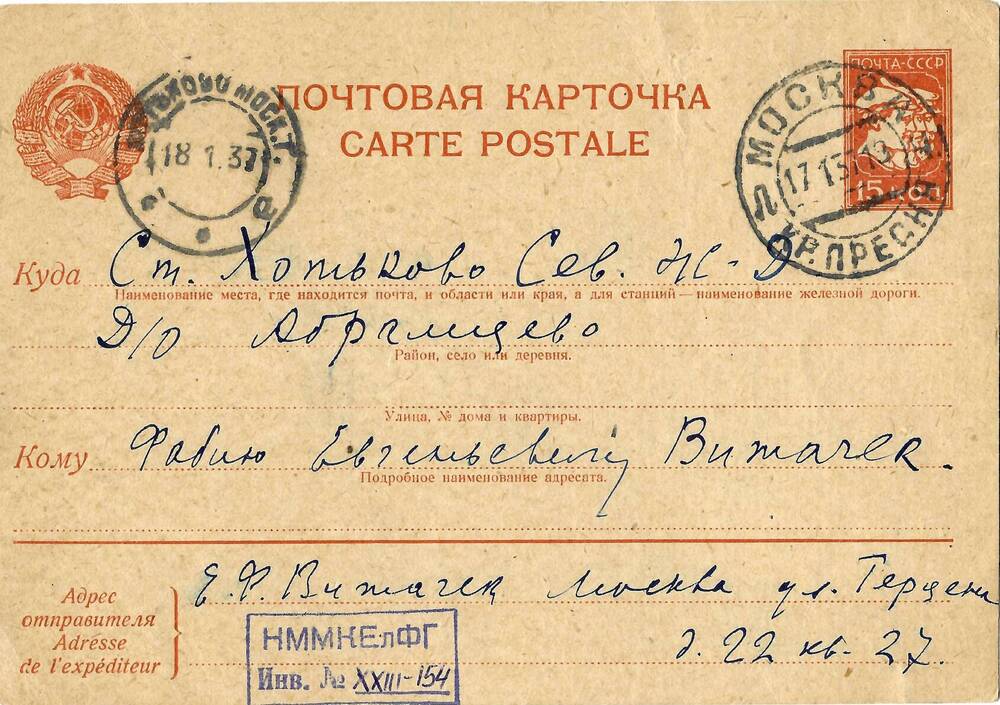 ПОЧТОВАЯ КАРТОЧКА
CARTE POSTALE
ПОЧТА-СССР
15 КОП
МОСК.Г.
18 1.37
МОСКВА
17 1 37 19
КР.ПРЕСНЯ
Куда Ст. Хотьково Сев. Ж-Д
Наименование места, где находится почта, и области или края, а для станций — наименование железной дороги.
Д/О Абрамцево
Район, село или деревня.
Улица, № дома и квартиры.
Кому Фабию Евгеньевичу Витачек.
Подробное наименование адресата.
Адрес отправителя
Adresse de l'expéditeur
Е.Ф. Витачек Москва ул. Герцена
д. 22 кв. 27.
НММКЕлФГ
Инв. № XXIII-154